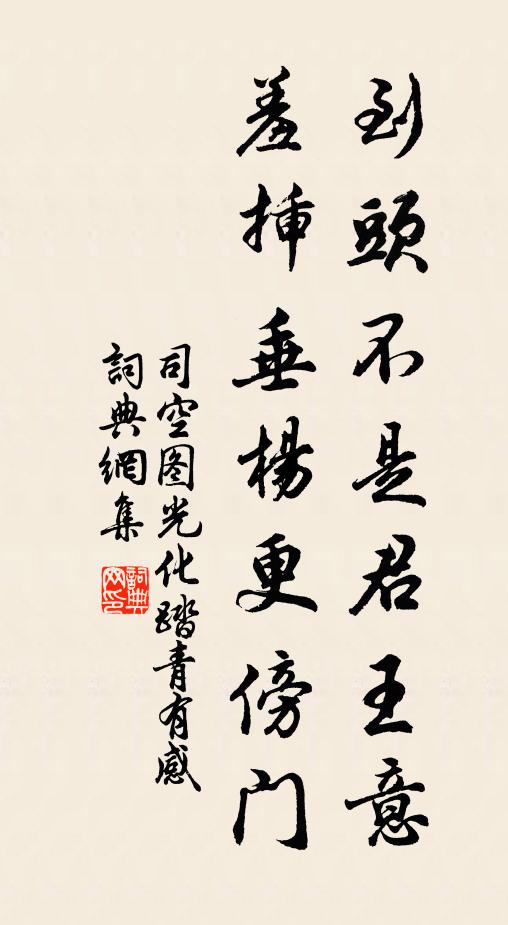 到頭不是君王意
羞揷垂楊更傍門
司空图光化踏青有感
詞典網集
詞典網印